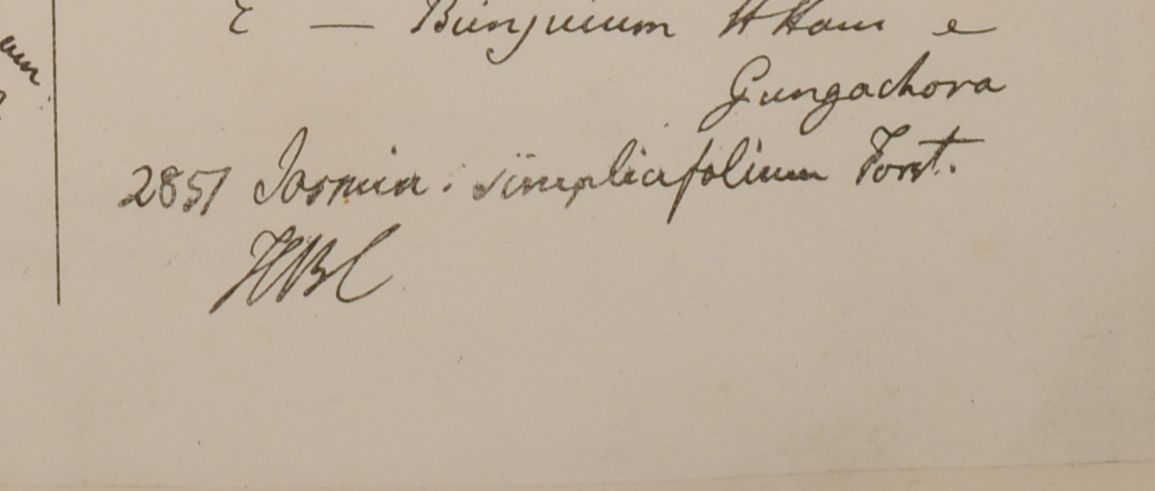 ε — Bunjuium HHam e
Gungachora
2857 Jasmin. simplicifolium Forst.
HBC